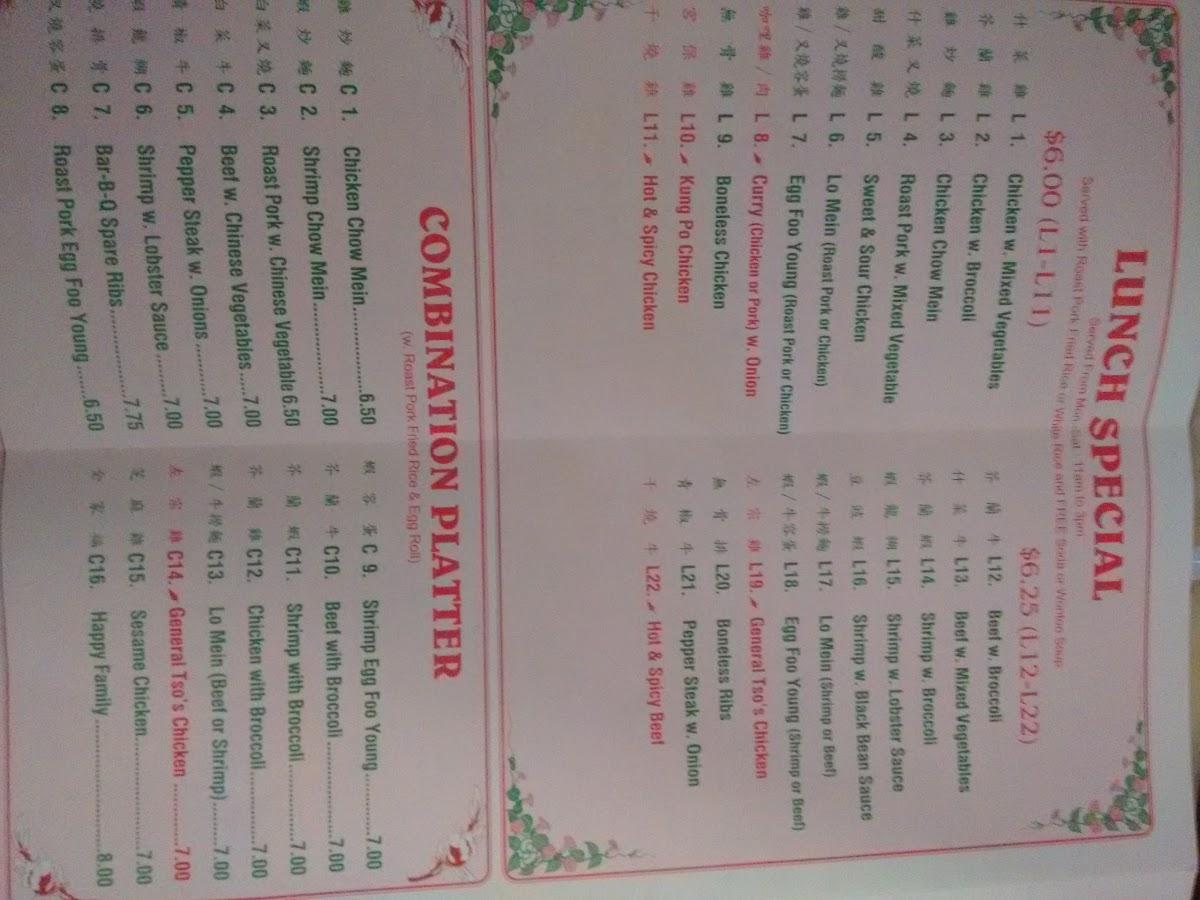 LUNCH SPECIAL
Served From Mon.-Sat. 11am to 3pm
Served with Roast Pork Fried Rice or White Rice and FREE Soda or Wonton Soup
$6.00 (L1-L11)
什菜雞 L 1. Chicken w. Mixed Vegetables
芥蘭雞 L 2. Chicken w. Broccoli
雞炒麵 L 3. Chicken Chow Mein
什菜叉燒 L 4. Roast Pork w. Mixed Vegetable
甜酸雞 L 5. Sweet & Sour Chicken
雞/叉燒撈麵 L 6. Lo Mein (Roast Pork or Chicken)
雞/叉燒蓉蛋 L 7. Egg Foo Young (Roast Pork or Chicken)
咖喱雞/肉 L 8. Curry (Chicken or Pork) w. Onion
無骨雞 L 9. Boneless Chicken
宮保雞 L10. Kung Po Chicken
干燒雞 L11. Hot & Spicy Chicken
$6.25 (L12-L22)
芥蘭牛 L12. Beef w. Broccoli
什菜牛 L13. Beef w. Mixed Vegetables
芥蘭蝦 L14. Shrimp w. Broccoli
蝦龍糊 L15. Shrimp w. Lobster Sauce
豆豉蝦 L16. Shrimp w. Black Bean Sauce
蝦/牛撈麵 L17. Lo Mein (Shrimp or Beef)
蝦/牛蓉蛋 L18. Egg Foo Young (Shrimp or Beef)
左宗雞 L19. General Tso's Chicken
無骨排 L20. Boneless Ribs
青椒牛 L21. Pepper Steak w. Onion
干燒牛 L22. Hot & Spicy Beef
COMBINATION PLATTER
(w. Roast Pork Fried Rice & Egg Roll)
雞炒麵 C 1. Chicken Chow Mein 6.50
蝦炒麵 C 2. Shrimp Chow Mein 7.00
白菜叉燒 C 3. Roast Pork w. Chinese Vegetable 6.50
白菜牛 C 4. Beef w. Chinese Vegetables 7.00
青椒牛 C 5. Pepper Steak w. Onions 7.00
蝦龍糊 C 6. Shrimp w. Lobster Sauce 7.00
燒排骨 C 7. Bar-B-Q Spare Ribs 7.75
叉燒蓉蛋 C 8. Roast Pork Egg Foo Young 6.50
蝦蓉蛋 C 9. Shrimp Egg Foo Young 7.00
芥蘭牛 C10. Beef with Broccoli 7.00
芥蘭蝦 C11. Shrimp with Broccoli 7.00
芥蘭雞 C12. Chicken with Broccoli 7.00
蝦/牛撈麵 C13. Lo Mein (Beef or Shrimp) 7.00
左宗雞 C14. General Tso's Chicken 7.00
芝麻雞 C15. Sesame Chicken 7.00
全家福 C16. Happy Family 8.00